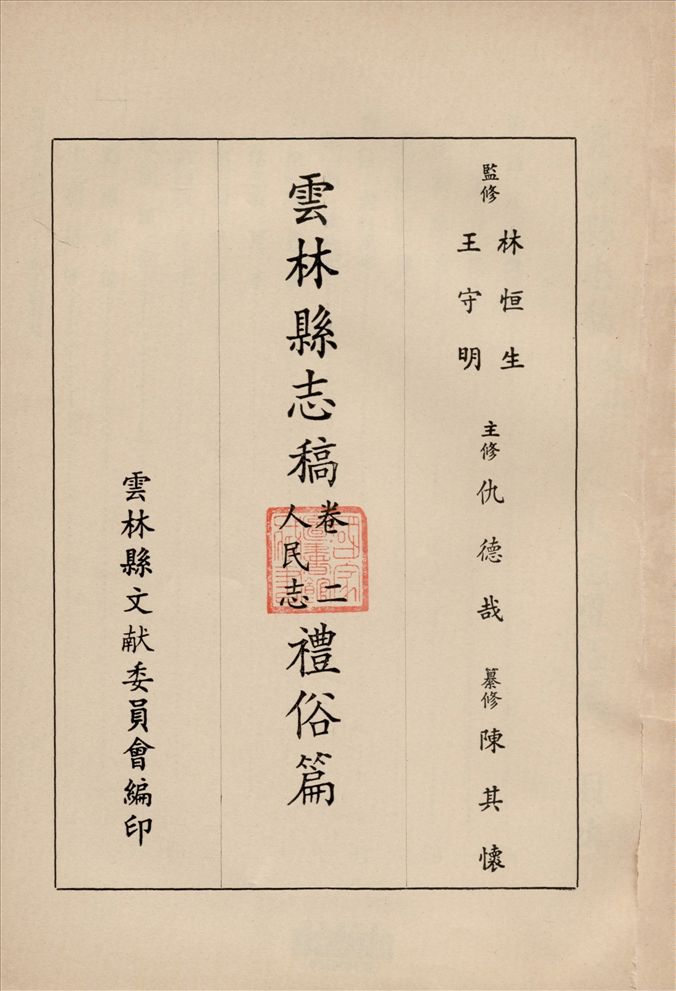 監修 林恒生 王守明 主修 仇德哉 纂修 陳其懷
雲林縣志稿 卷二 人民志 禮俗篇
雲林縣文献委員會編印